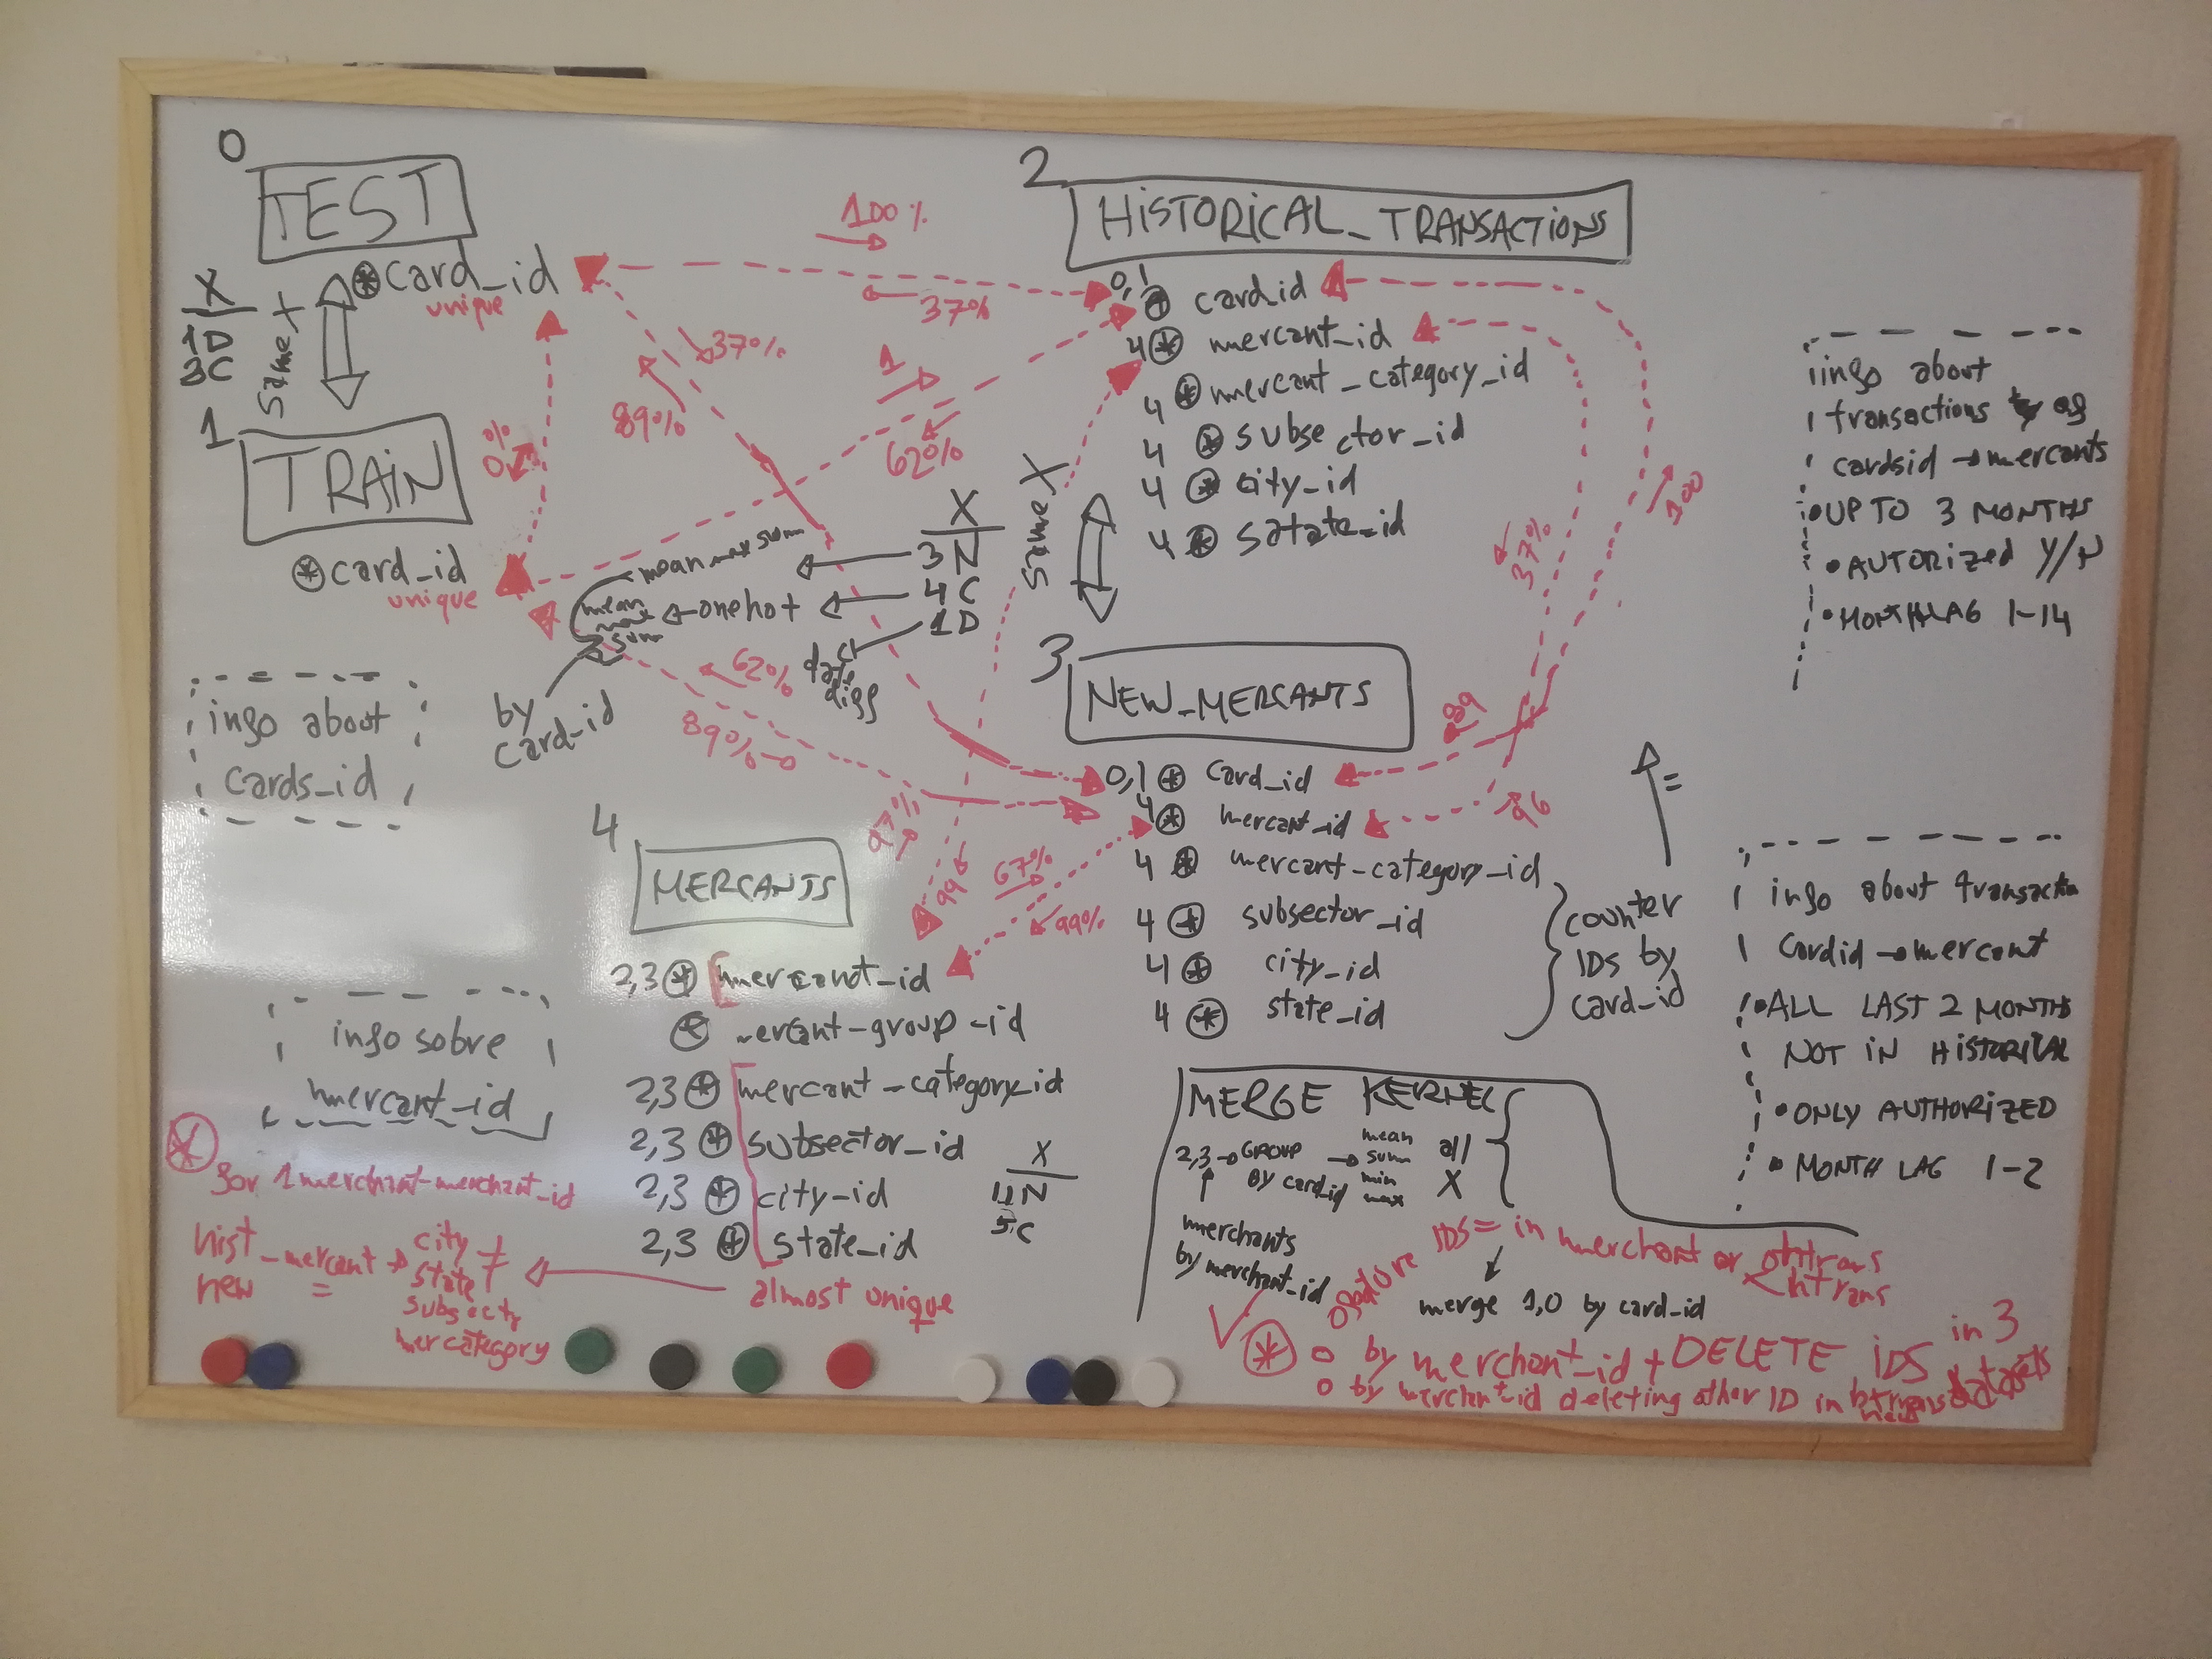 0
TEST
⊛ card_id
unique
X
1D
3C
same X
1
TRAIN
⊛ card_id
unique
0%
100%
37%
37%
89%
1
62%
2
HISTORICAL_TRANSACTIONS
0,1 ⊛ card_id
4 ⊛ mercant_id
4 ⊛ mercant_category_id
4 ⊛ subsector_id
4 ⊛ city_id
4 ⊛ satate_id
info about
transactions of
cardsid → mercants
• UP TO 3 MONTHS
• AUTORIZED Y/N
• MONTHLAG 1-14
X
3N
4C
1D
mean max sum
onehot
mean
max
sum
date
diff
by
card_id
same X
37%
100
89
96
62%
89%
info about
cards_id
3
NEW_MERCANTS
0,1 ⊛ card_id
4 ⊛ mercant_id
4 ⊛ mercant-category_id
4 ⊛ subsector_id
4 ⊛ city_id
4 ⊛ state_id
counter
IDS by
card_id
=
info about transaction
cardid → mercant
• ALL LAST 2 MONTHS
NOT IN HISTORICAL
• ONLY AUTHORIZED
• MONTH LAG 1-2
97%
99
67%
99%
4
MERCANTS
2,3 ⊛ mercant_id
⊛ mercant-group-id
2,3 ⊛ mercant-category_id
2,3 ⊛ subsector_id
2,3 ⊛ city_id
2,3 ⊛ state_id
X
11N
5C
info sobre
mercant_id
⊛
for 1 merchant-merchant_id
hist_mercant → city ≠
new = state
subsect
mercategory
almost unique
MERGE KERNEL
2,3 → GROUP → mean all
by card_id sum X
min
max
merchants
by merchant_id
IDS = in merchant or
htrans
merge 1,0 by card_id
⊛ o by merchant_id + DELETE IDS in 3
datasets
o by merchant_id deleting other ID in htrans